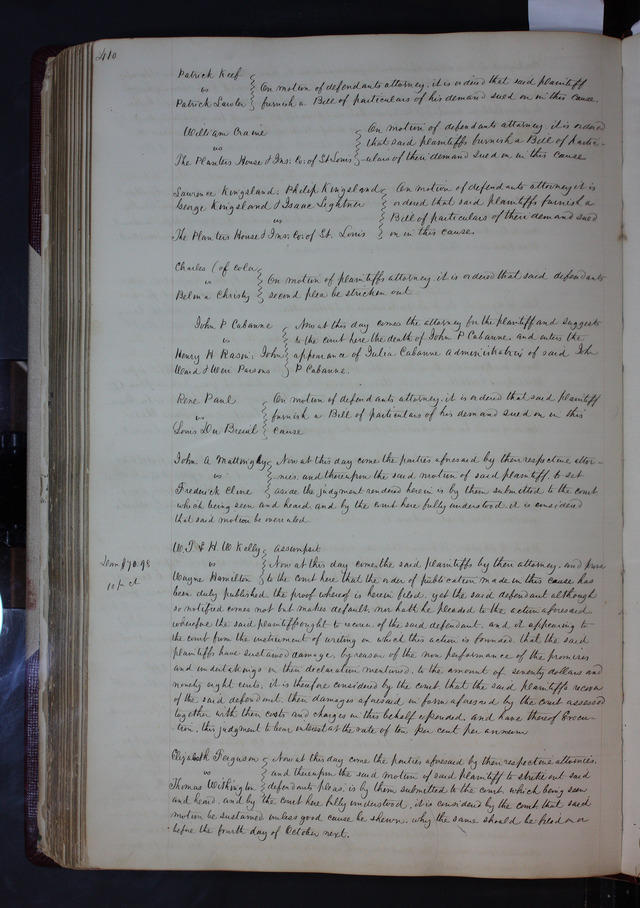 410
Patrick Keef
vs
Patrick Lawler
On motion of defendants attorney, it is ordered that said plaintiff
furnish a Bill of particulars of his demand sued on in this cause.
William Craine
vs
The Planters House & Ins: Co: of St. Louis
On motion of defendants attorney it is ordered
that said plaintiffs furnish a Bill of partic-
ulars of their demand sued on in this cause
Lawrence Kingsland, Philip Kingsland
George Kingsland & Isaac Lightner
vs
The Planters House & Ins: Co: of St. Louis
On motion of defendants attorney it is
ordered that said plaintiffs furnish a
Bill of particulars of their demand sued
on in this cause.
Charles (of color
vs
Belina Christy
On motion of plaintiffs attorney it is ordered that said defendants
second plea be stricken out
John P Cabanne
vs
Henry H Rasin, John
Ward & Weir Parsons
Now at this day comes the attorney for the plaintiff and suggests
to the court here the death of John P Cabanne, and enters the
appearance of Julia Cabanne administratrix of said John
P Cabanne.
Rene Paul
vs
Louis Du Breuil
On motion of defendants attorney, it is ordered that said plaintiff
furnish a Bill of particulars of his demand sued on in this
cause
John A Mattingly
vs
Frederick Cline
Now at this day come the parties aforesaid by their respective attor-
nies, and thereupon the said motion of said plaintiff, to set
aside the judgment rendered herein is by them submitted to the court
which being seen and heard and by the court here fully understood, it is considered
that said motion be overruled.
Dam $70.98
10 pr ct
W. T & H. W Kelly
vs
Wayne Hamilton
assumpsit
Now at this day comes the said plaintiffs by their attorney, and prove
to the court here that the order of publication made in this cause has
been duly published the proof whereof is herein filed, yet the said defendant although
so notified comes not but makes default, nor hath he pleaded to the action aforesaid
wherefore the said plaintiffs ought to recover of the said defendant, and it appearing to
the court from the instrument of writing on which this action is founded, that the said
plaintiffs have sustained damage, by reason of the non performance of the promises
and undertakings in their declaration mentioned, to the amount of seventy dollars and
ninety eight cents, it is therefore considered by the court that the said plaintiffs recover
of the said defendant, their damages aforesaid in form aforesaid by the court assessed
together with their costs and charges in this behalf expended, and have thereof Execu-
tion, this judgment to bear interest at the rate of ten per cent per annum
Elizabeth Ferguson
vs
Thomas Withington
Now at this day come the parties aforesaid by their respective attornies,
and thereupon the said motion of said Plaintiff to strike out said
defendants pleas, is by them submitted to the court which being seen
and heard, and by the court here fully understood, it is considered by the court that said
motion be sustained unless good cause be shewn, why the same should be filed on or
before the fourth day of October next.